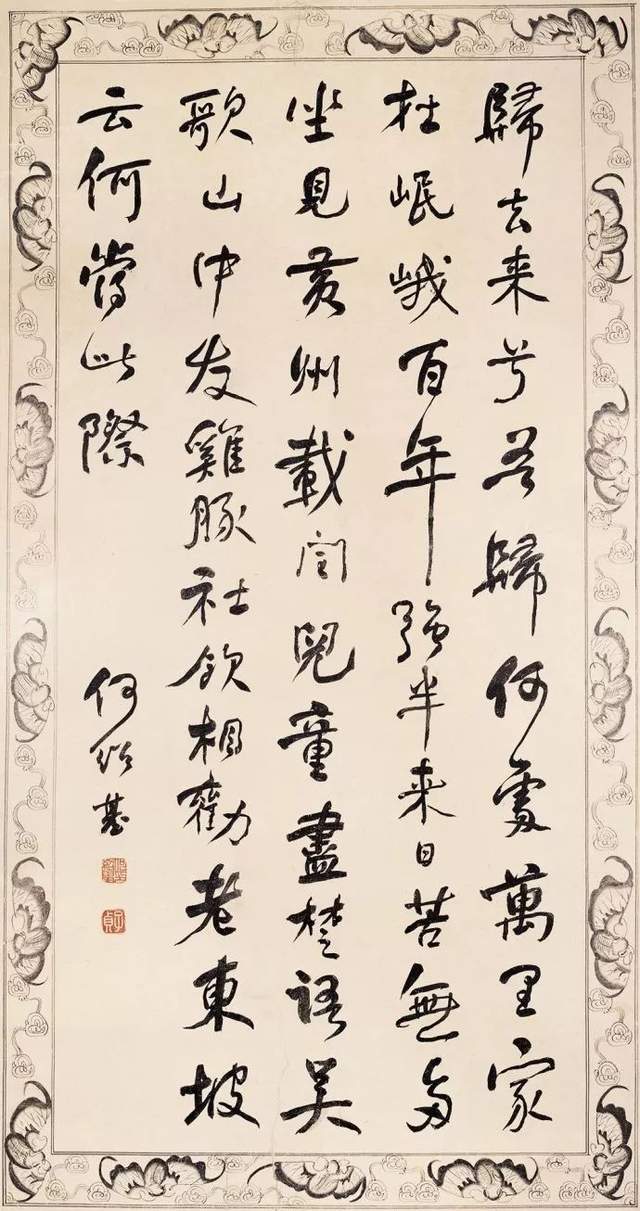 歸去来兮吾歸何處萬里家
在岷峨百年強半来日苦無多
坐見黃州載閏兒童盡楚語吳
歌山中友雞豚社飲相勸老東坡
云何當此際
何紹基
子貞